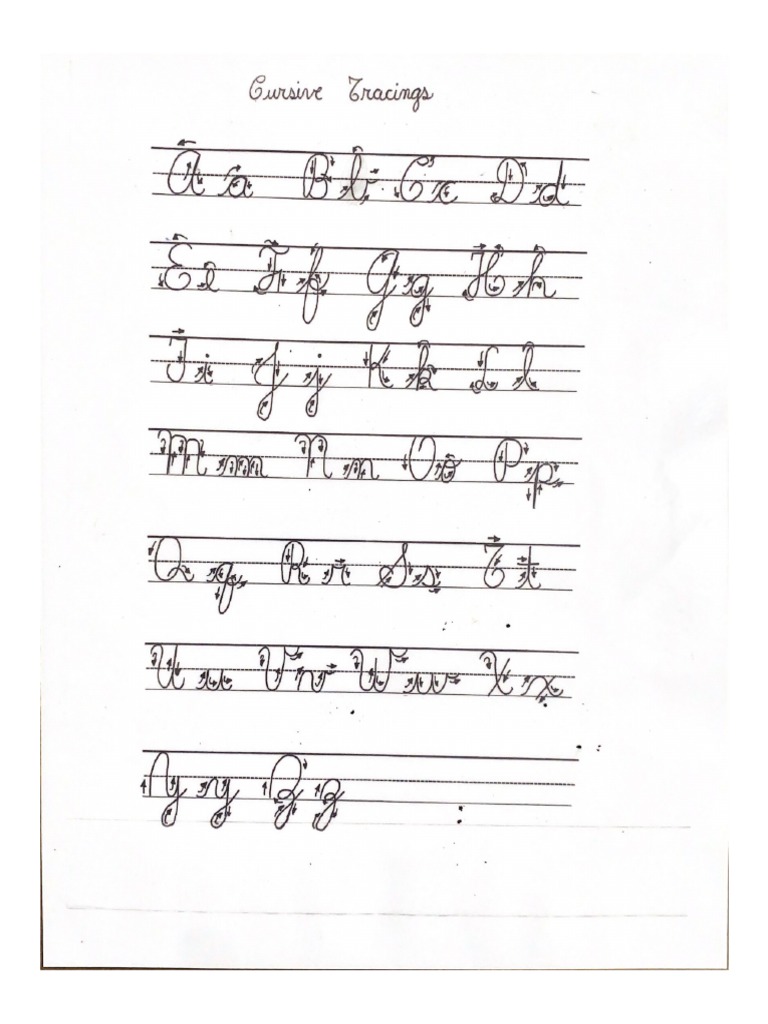 Cursive Tracings
A a B b C c D d
E e F f G g H h
I i J j K k L l
M m N n O o P p
Q q R r S s T t
U u V v W w X x
Y y Z z